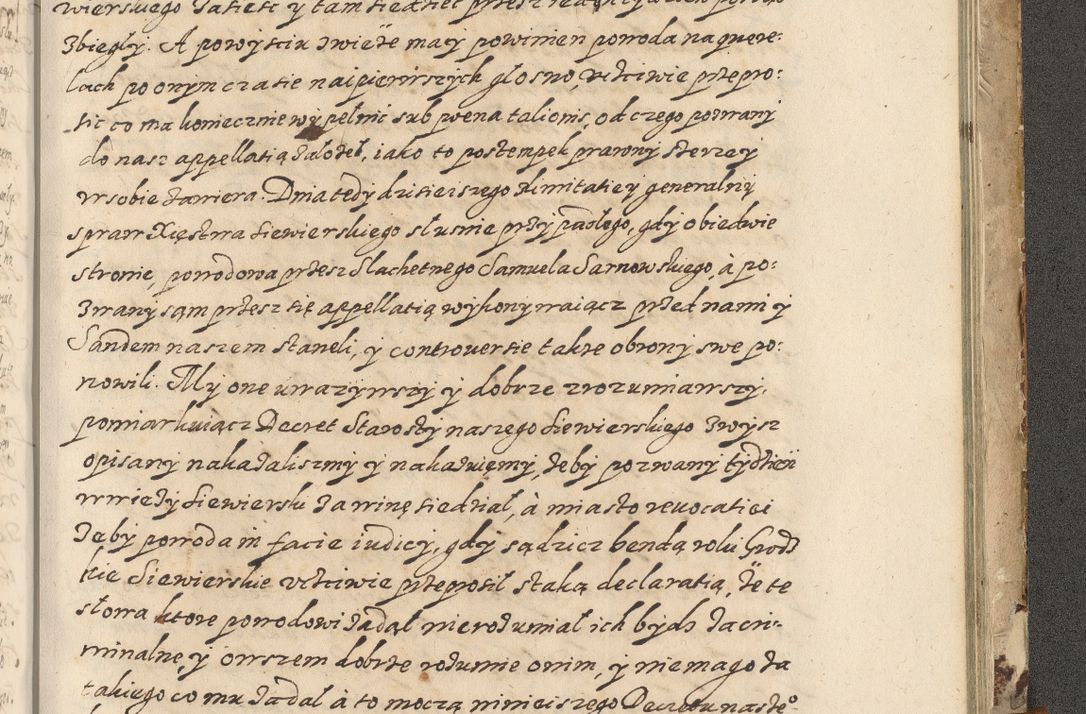 wierskiego zasieść y tam siedzieć przesz
zbiegły. A powyściu z wieże may powinien powoda na quere-
lach po onym czasie naipierwszych głosno, ucżciwie przepro-
sic co ma koniecznie wypełnić sub poena talionis, od czego pozwany
do nasz appellatią założeł, iako to postempek prawny szerzey
w sobie zawiera. Dnia tedy dzisieiszego z limitatiey generalny
spraw Xięstwa Siewierskiego słusnie przypadłego, gdy obiedwie
stronie, powodowa przesz Slachetnego Samuela Sarnowskiego, à po-
zwany sąm przesz się appellatią wykonywaiącz przed nami y
Sandem naszem staneli, y controuersie takze obrony swe po-
nowili. My one uwazywszy y dobrze zrozumiawszy,
pomiarkuiącz Decret Starosty naszego Siewierskiego zwysz
opisany nakazaliszmy y nakazuięmy, żeby pozwany tydzień
w wieży Siewiersku za winę siedział, à miasto reuocatiei
żeby powoda in facie iudicy, gdy sądzicz bendą roki Grodz
kie Siewierskie ucżciwie przeprosił s taką declaratią, że te
słowa ktore powodowi zadał nie rozumiał ich bydz za cri-
minalne, y owszem dobrze rozumie o nim, y nie mago za
takiego co mu zadal à to moczą ninieiszego Decretu naszeº